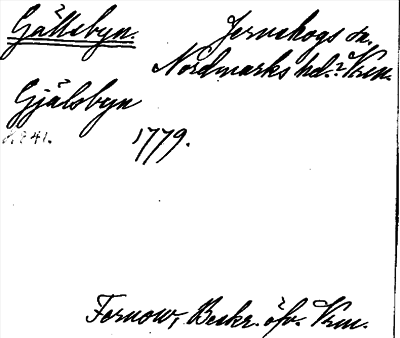 Gällsbyn. Jernskogs sn.
Nordmarks hd. Vrm.
Gjälsbyn
1779.
Fernow, Beskr. öfv. Vrm.